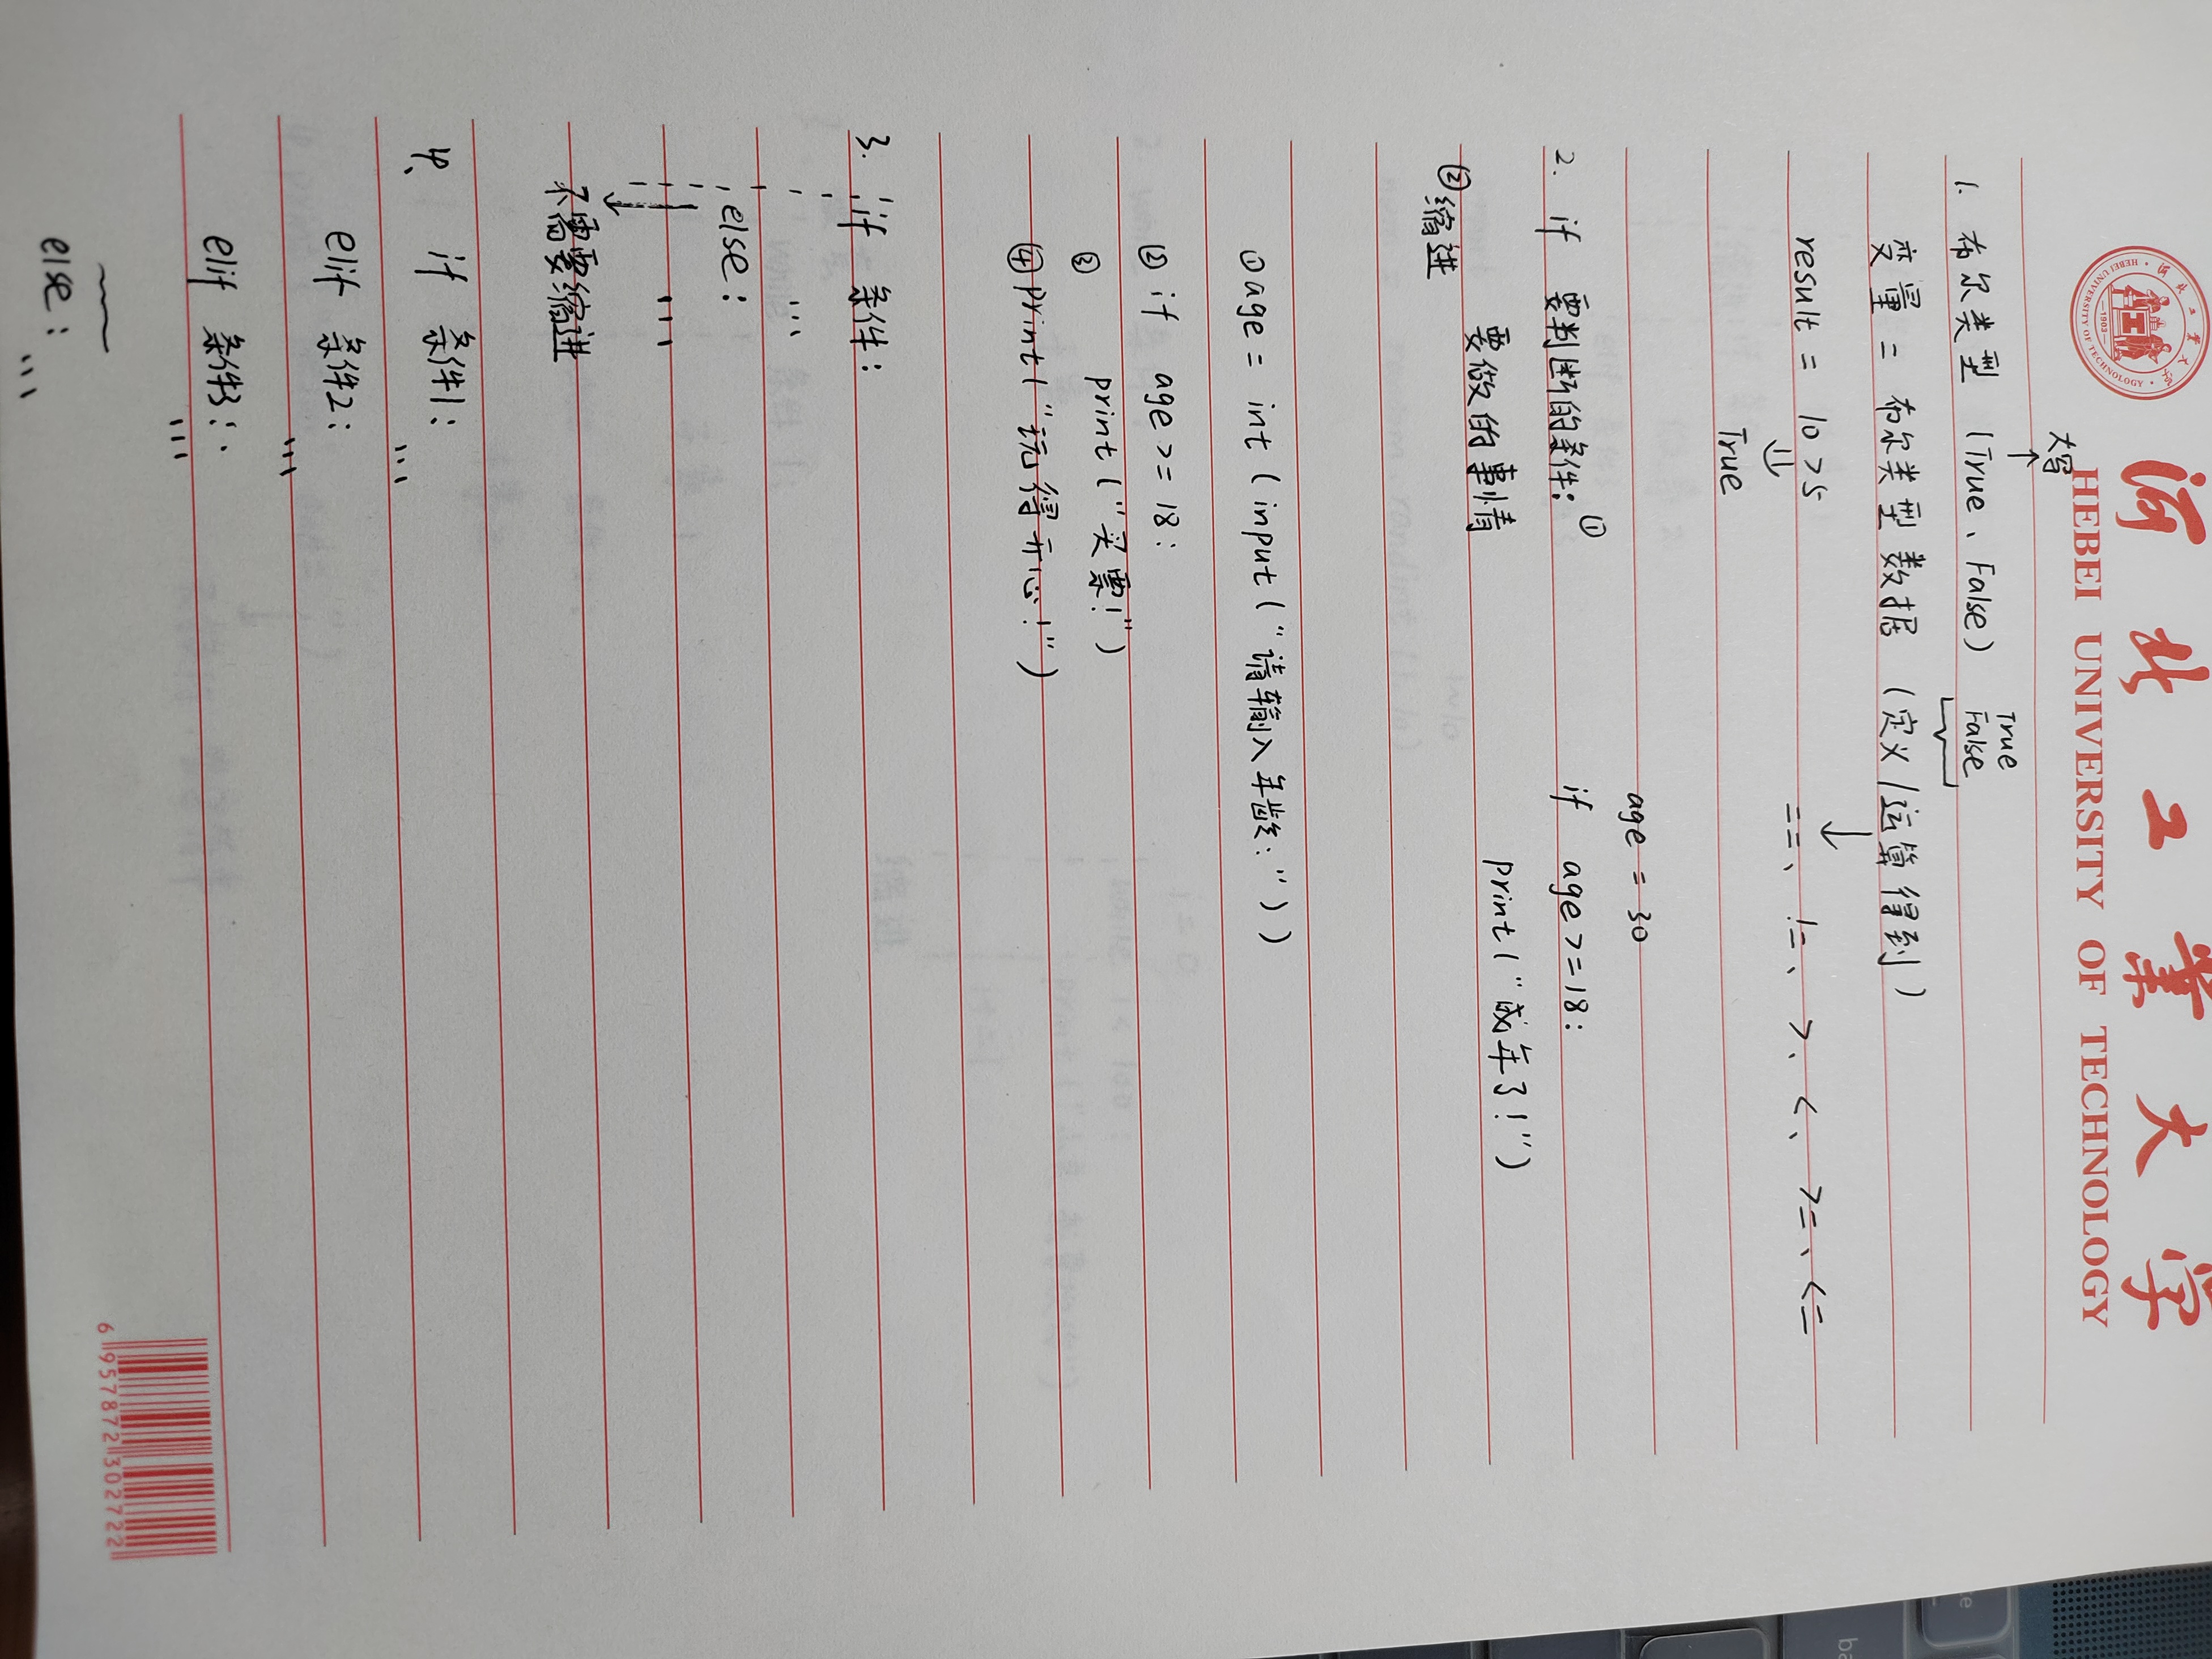 河北工業大学
HEBEI UNIVERSITY OF TECHNOLOGY
河北工業大学
HEBEI UNIVERSITY OF TECHNOLOGY
1903
大写
↑
True
1. 布尔类型 (True、False) False
变量 = 布尔类型数据 (定义/运算得到)
↓
result = 10 > 5 ==、 !=、 >、 <、 >=、 <=
⇓
True
age = 30
2. if 要判断的条件: ① if age >= 18:
要做的事情 print("成年了!")
② 缩进
① age = int (input ("请输入年龄:"))
② if age >= 18:
③ print ("买票!")
④ print("玩得开心!")
3. if 条件:
...
else:
...
↓
不需要缩进
4、 if 条件1:
...
elif 条件2:
...
elif 条件3:
...
else:
...
6 957872 302722